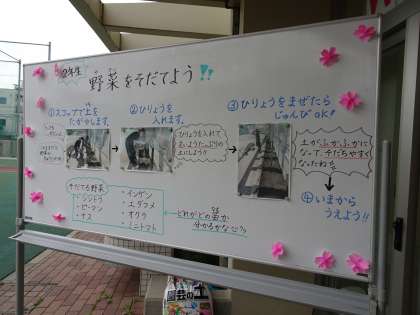 2年生
野菜をそだてよう!!
①スコップで土を
たがやします。
②ひりょうを
入れます。
ひりょうを入れて
③ひりょうをまぜたら
じゅんびOK!
土がふかふかに
なって、そだちやすく
なったね
④いまから
うえよう!!
そだてる野菜
・シシトウ
・ピーマン
・ナス
・インゲン
・エダマメ
・オクラ
・ミニトマト
どれがどの苗か
分かるかな?
の土